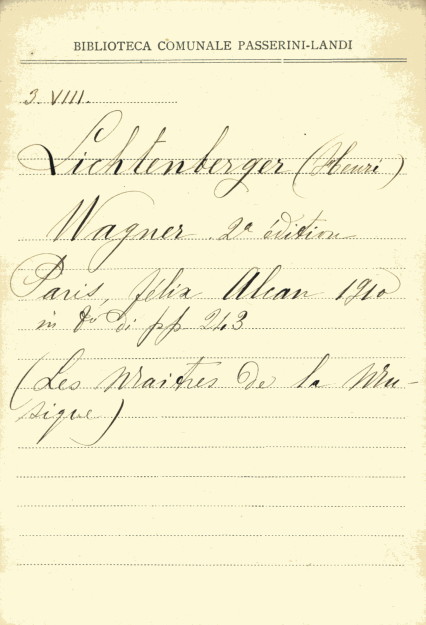 BIBLIOTECA COMUNALE PASSERINI-LANDI
3. VIII.
Lichtenberger (Henri)
Wagner. 2e édition
Paris, félix Alcan 1910
in 8º di pp 243
(Les Maitres de la Mu-
sique)